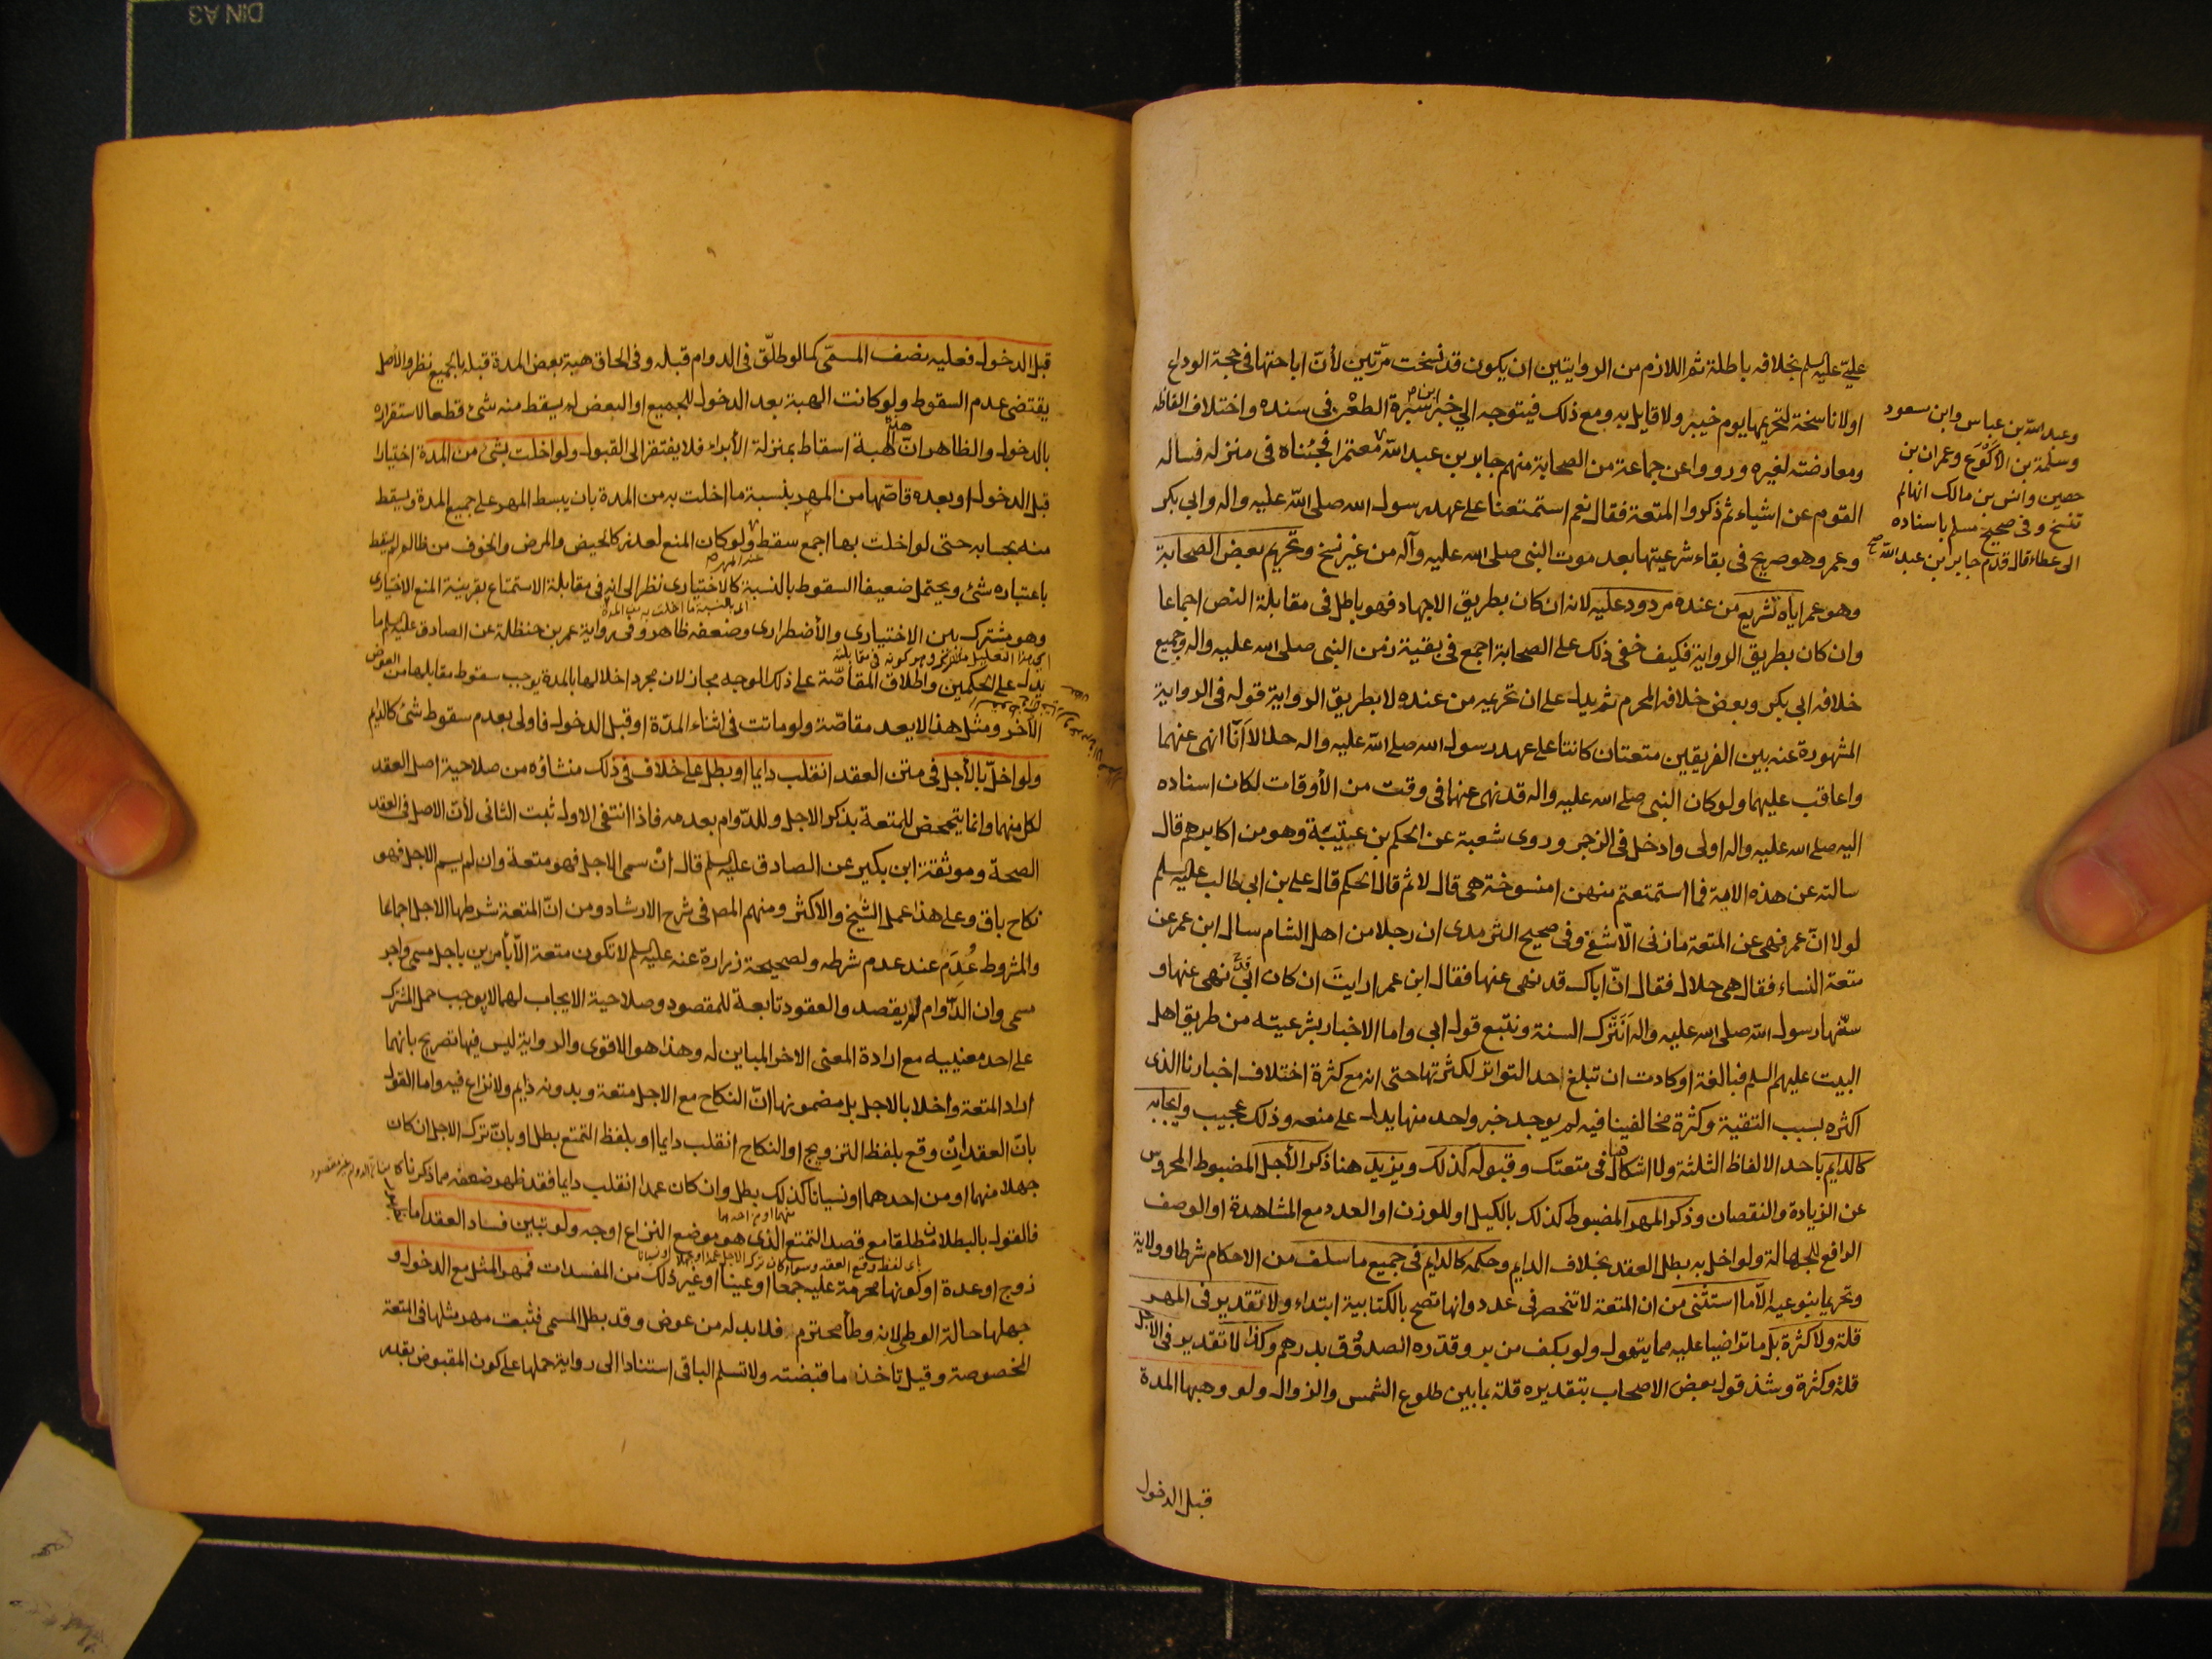 علي عليه السلم بخلافه باطلة ثم اللازم من الروايتين ان يكون قد نسخت مرّتين لأنّ اباحتها في حجة الوداع
اولا ناسخة لتحريمها يوم خيبر ولا قايل به ومع ذلك فيتوجه الي خبر ابن سَبْرة الطعْن في سنده واختلاف الفاظه
ومعارضته لغيره ورووا عن جماعة من الصحابة منهم جابر بن عبد اللّه معتمرا فجئناه في منزله فساله
القوم عن اشياء ثم ذكروا المتعة فقال نعم استمتعنا على عهد رسول الله صلى اللّه عليه واله وابي بكر
وعمر وهو صريح في بقاء شرعيتها بعد موت النبي صلى الله عليه وآله من غير نسخ وتحريم بعض الصحابة
وهو عمر اياه تشريع من عنده مردود عليه لانه ان كان بطريق الاجهاد فهو باطل في مقابلة النص اجماعا
وان كان بطريق الرواية فكيف خفي ذلك على الصحابة اجمع في بقية زمن النبي صلى الله عليه واله وجميع
خلافه ابي بكر وبعض خلافه المحرم ثم يدل على ان تحريمه من عنده لا بطريق الرواية قوله في الرواية
المشهورة عنه بين الفريقين متعتان كانتا على عهد رسول الله صلى اللّه عليه واله حلالا اَنَا انهى عنهما
واعاقب عليهما ولو كان النبي صلى الله عليه واله قد نهى عنهما في وقت من الأوقات لكان اسناده
اليه صلى الله عليه واله اولى وادخل في الزجر وروى شعبة عن الحكم بن عيتيبة وهو من اكابرهم قال
سالته عن هذه الاية فما استمتعتم منهن امنسوخة هي قال لا ثم قال الحكم قال علي بن ابي طالب عليه السلم
لولا انّ عمر نهى عن المتعة ما زنى الّا شفى وفي صحيح الترمدى ان رجلا من اهل الشام سال ابن عمر عن
متعة النساء فقال هي حلال فقال انّ اباك قد نهى عنها فقال ابن عمر ارايتَ ان كان ابي قد نهى عنها و
سنّها رسول اللّه صلى الله عليه واله اَنَتْرُك السنة ونتبع قول ابي واما الاخبار بشرعيته من طريق اهل
البيت عليهم السلم فبالغة او كادت ان تبلغ احد التواتر لكثرتها حتى انه مع كثرة اختلاف اخبارنا الذى
اكثره بسبب التقية وكثرة مخالفينا فيه لم يوجد خبر واحد منها يدل على منعه وذلك عجيب وايجابه
كالدايم باحد الالفاظ الثلثة ولا اشكال هنا في متعتك وقبوله كذلك ويزيد هنا ذكر الأجل المضبوط المحروس
عن الزيادة والنقصان وذكر المهر المضبوط كذلك بالكيل او للوزن او العدد مع المشاهدة او الوصف
الرافع للجهالة ولو اخل به بطل العقد بخلاف الدايم وحكمه كالدايم في جميع ما سلف من الاحكام شرطا وولاية
وتحريما بنوعيه الّا ما استثنى من ان المتعة لا تنحصر في عدد وانها تصح بالكتابية ابتداء ولا تقدير في المهر
قلة ولا كثرة بل ما تراضيا عليه مما يتمول ولو بكف من بر وقدّره الصدوق بدرهم وكذا لا تقدير في الاجل
قلة وكثرة وشذ قول بعض الاصحاب بتقديره قلة بما بين طلوع الشمس والزوال ولو وهبها المدة
قبل الدخول
وعبد اللّه بن عباس وابن مسعود
وسلمة بن الاَكْوَع وعمران بن
حصين وانس بن مالك انها لم
تنسخ وفي صحيح مسلم باسناده
الى عطاء قال قدم جابر بن عبد اللّه صح
قبل الدخول فعليه نصف المسمّى كما لو طلّق في الدوام قبله وفي الحاق هبة بعض المدة قبله بالجميع نظر والأصل
يقتضى عدم السقوط ولو كانت الهبة بعد الدخول للجميع او البعض لم يسقط منه شئ قطعا لاستقراره
بالدخول والظاهر انّ هذه الهبة اسقاط بمنزلة الأبراء فلا يفتقر الى القبول ولو اخلت بشئ من المدة اختيارا
قبل الدخول او بعده قاصّها من المهر بنسبة ما اخلت به من المدة بان يبسط المهر على جميع المدة ويسقط
منه بحسابه حتى لو اخلت بها اجمع سقط عنه المهر ولو كان المنع لعذر كالحيض والمرض والخوف من ظالم لم يسقط
باعتباره شئ ويحتمل ضعيفا السقوط بالنسبة كالاختيارى نظرا الى انه في مقابلة الاستمتاع بقرينة المنع الاختيارى
وهو مشترك بين الاختيارى والأضطرارى وضعفه ظاهر وفي رواية عمر بن حنظلة عن الصادق عليه السلم ما
يدل على الحكمين واطلاق المقاصّة على ذلك الموجه مجاز لان مجرد اخلالها بالمدة يوجب سقوط مقابلها من العوض
الآخر ومثل هذا لا يعد مقاصّة ولو ماتت في اثناء المدّة او قبل الدخول فاولى بعدم سقوط شئ كالدايم
ولو اخلّ بالأجل في متن العقد انقلب دايما او بطل على خلاف في ذلك منشاؤه من صلاحية اصل العقد
لكل منهما وانما يتمحض للمتعة بذكر الاجل وللدّوام بعدمه فاذا انتفى الاول ثبت الثانى لأنّ الاصل في العقد
الصحة وموثقة ابن بكير عن الصادق عليه السلم قال انْ سمى الاجل فهو متعة وان لم يسم الاجل فهو
نكاح باق وعلى هذا عمل الشيخ والاكثر ومنهم المص في شرح الارشاد ومن انّ المتعة شرطها الاجل اجماعا
والمشروط عُدِمَ عند عدم شرطه ولصحيحة زرارة عنه عليه السلم لا تكون متعة الّا بأمرين باجل مسمى واجر
مسمى وان الدّوام لم يقصد والعقود تابعة للمقصود وصلاحية الايجاب لهما لا يوجب حمل المشترك
على احد معنييه مع ارادة المعنى الاخر المباين له وهذا هو الاقوى والرواية ليس فيها تصريح بانهما
ارادا المتعة واخلا بالاجل بل مضمونها انّ النكاح مع الاجل متعة وبدونه دايم ولا نزاع فيه واما القول
بانّ العقد اِن وقع بلفظ التزويج او النكاح انقلب دايما او بلفظ التمتع بطل او بانّ ترك الاجل ان كان
جهلا منهما او من احدهما او نسيانا كذلك بطل وان كان عمدا انقلب دايما فقد ظهر ضعفه مما ذكرناه
فالقول بالبطلان مطلقا مع قصد التمتع الذى هو موضع النزاع اوجه ولو تبين فساد العقد اما
زوج او عدة او كونها محرمة عليه جمعا او عينا او غير ذلك من المفسدات فمهر المثل مع الدخول و
جهلها حالة الوطى لانه وطأ محترم فلا بد له من عوض وقد بطل المسمى فثبت مهر مثلها في المتعة
المخصوصة وقيل تاخذ ما قبضته ولا تسلم الباقى استنادا الى رواية حملها على كون المقبوض بقدر
اى بالنسبة ما اخلت به من المدة
منهما او من احدهما
DIN A3